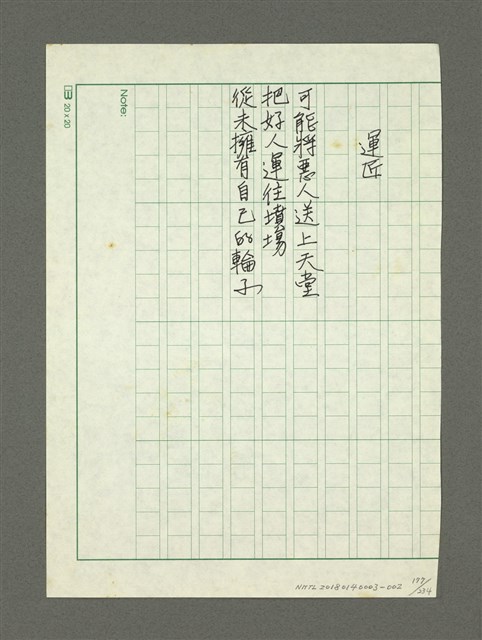 運匠
可能將惡人送上天堂
把好人運往墳場
從未擁有自己的輪子
Note:
20 x 20
NMTL20180140003-002
177/284